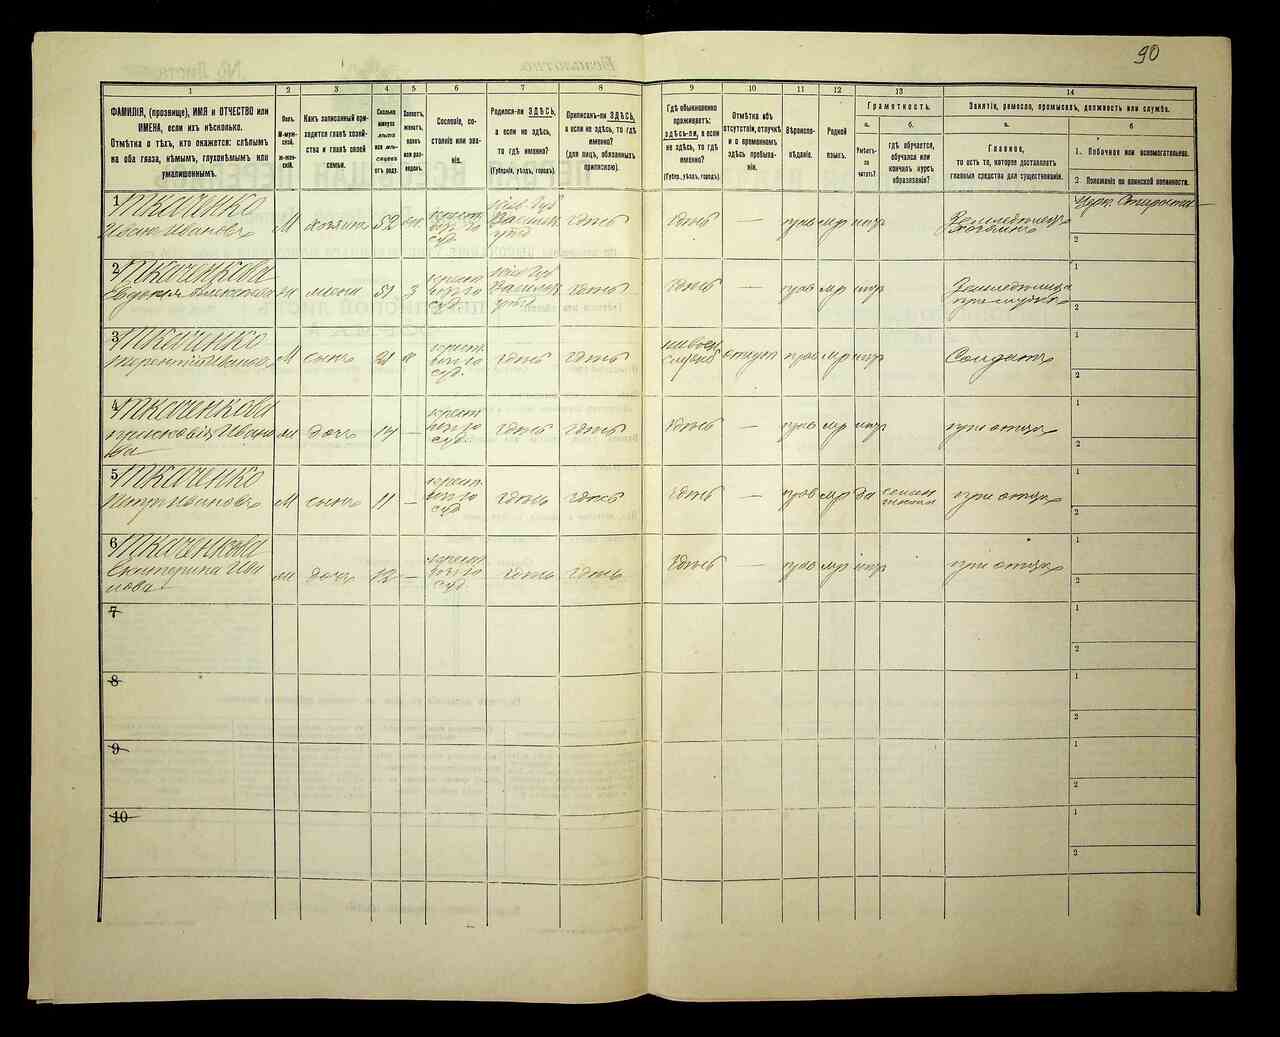 90
1 2 3 4 5 6 7 8 9 10 11 12 13 14
ФАМИЛІЯ, (прозвище), ИМЯ и ОТЧЕСТВО или
ИМЕНА, если ихъ нѣсколько.
Отмѣтка о тѣхъ, кто окажется: слѣпымъ
на оба глаза, нѣмымъ, глухонѣмымъ или
умалишеннымъ.
Полъ.
М-муж-
ской.
Ж-жен-
скій.
Какъ записанный при-
ходится главѣ хозяй-
ства и главѣ своей
семьи.
Сколько
минуло
лѣтъ
или мѣ-
сяцевъ
отъ роду.
Холостъ,
женатъ,
вдовъ
или раз-
веденъ.
Сословіе, со-
стояніе или зва-
ніе.
Родился-ли ЗДѢСЬ,
а если не здѣсь,
то гдѣ именно?
(Губернія, уѣздъ, городъ).
Приписанъ-ли ЗДѢСЬ,
а если не здѣсь, то гдѣ
именно?
(для лицъ, обязанныхъ
припискою).
Гдѣ обыкновенно
проживаетъ:
здѣсь-ли, а если
не здѣсь, то гдѣ
именно?
(Губер., уѣздъ, городъ).
Отмѣтка объ
отсутствіи, отлучкѣ
и о временномъ
здѣсь пребыва-
ніи.
Вѣроиспо-
вѣданіе.
Родной
языкъ.
Грамотность.
а. б.
Умѣетъ-
ли
читать?
гдѣ обучается,
обучался или
кончилъ курсъ
образованія?
Занятіе, ремесло, промыселъ, должность или служба.
а. б
Главное,
то есть то, которое доставляетъ
главныя средства для существованія.
1. Побочное или вспомогательное.
2. Положеніе по воинской повинности.
1 Ткаченко
Иванъ Ивановъ М хозяинъ 52 крест. Кіев. Губ Васильк. здѣсь здѣсь — прав мр негр Земледѣлецъ
2
2 Ткаченкова
Евдокія жена 51 3 крест Кіев. Губ Васильк. здѣсь здѣсь — прав мр негр Земледѣлица
1
2
3 Ткаченко
Терентій Ивановъ М сынъ 21 крест здѣсь здѣсь отпуск прав мр негр Солдатъ
1
2
4 Ткаченкова
Прасковія Ивано
ва дочь — крест здѣсь здѣсь здѣсь — прав мр негр при отцѣ
1
2
5 Ткаченко
Петръ Ивановъ М сынъ 11 — крест здѣсь здѣсь здѣсь — прав мр да при отцѣ
1
2
6 Ткаченкова
Екатерина Ива
нова дочь 12 — крест здѣсь здѣсь здѣсь — прав мр негр при отцѣ
1
2
7
1
2
8
1
2
9
1
2
10
1
2